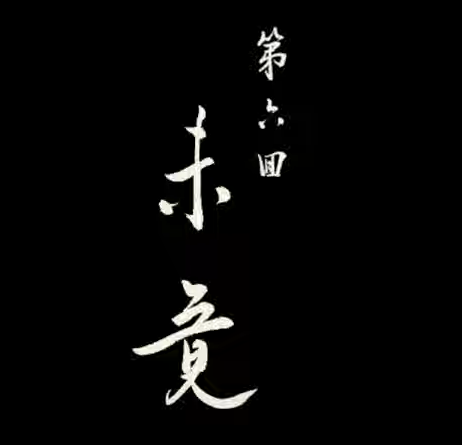 第六回
未竟